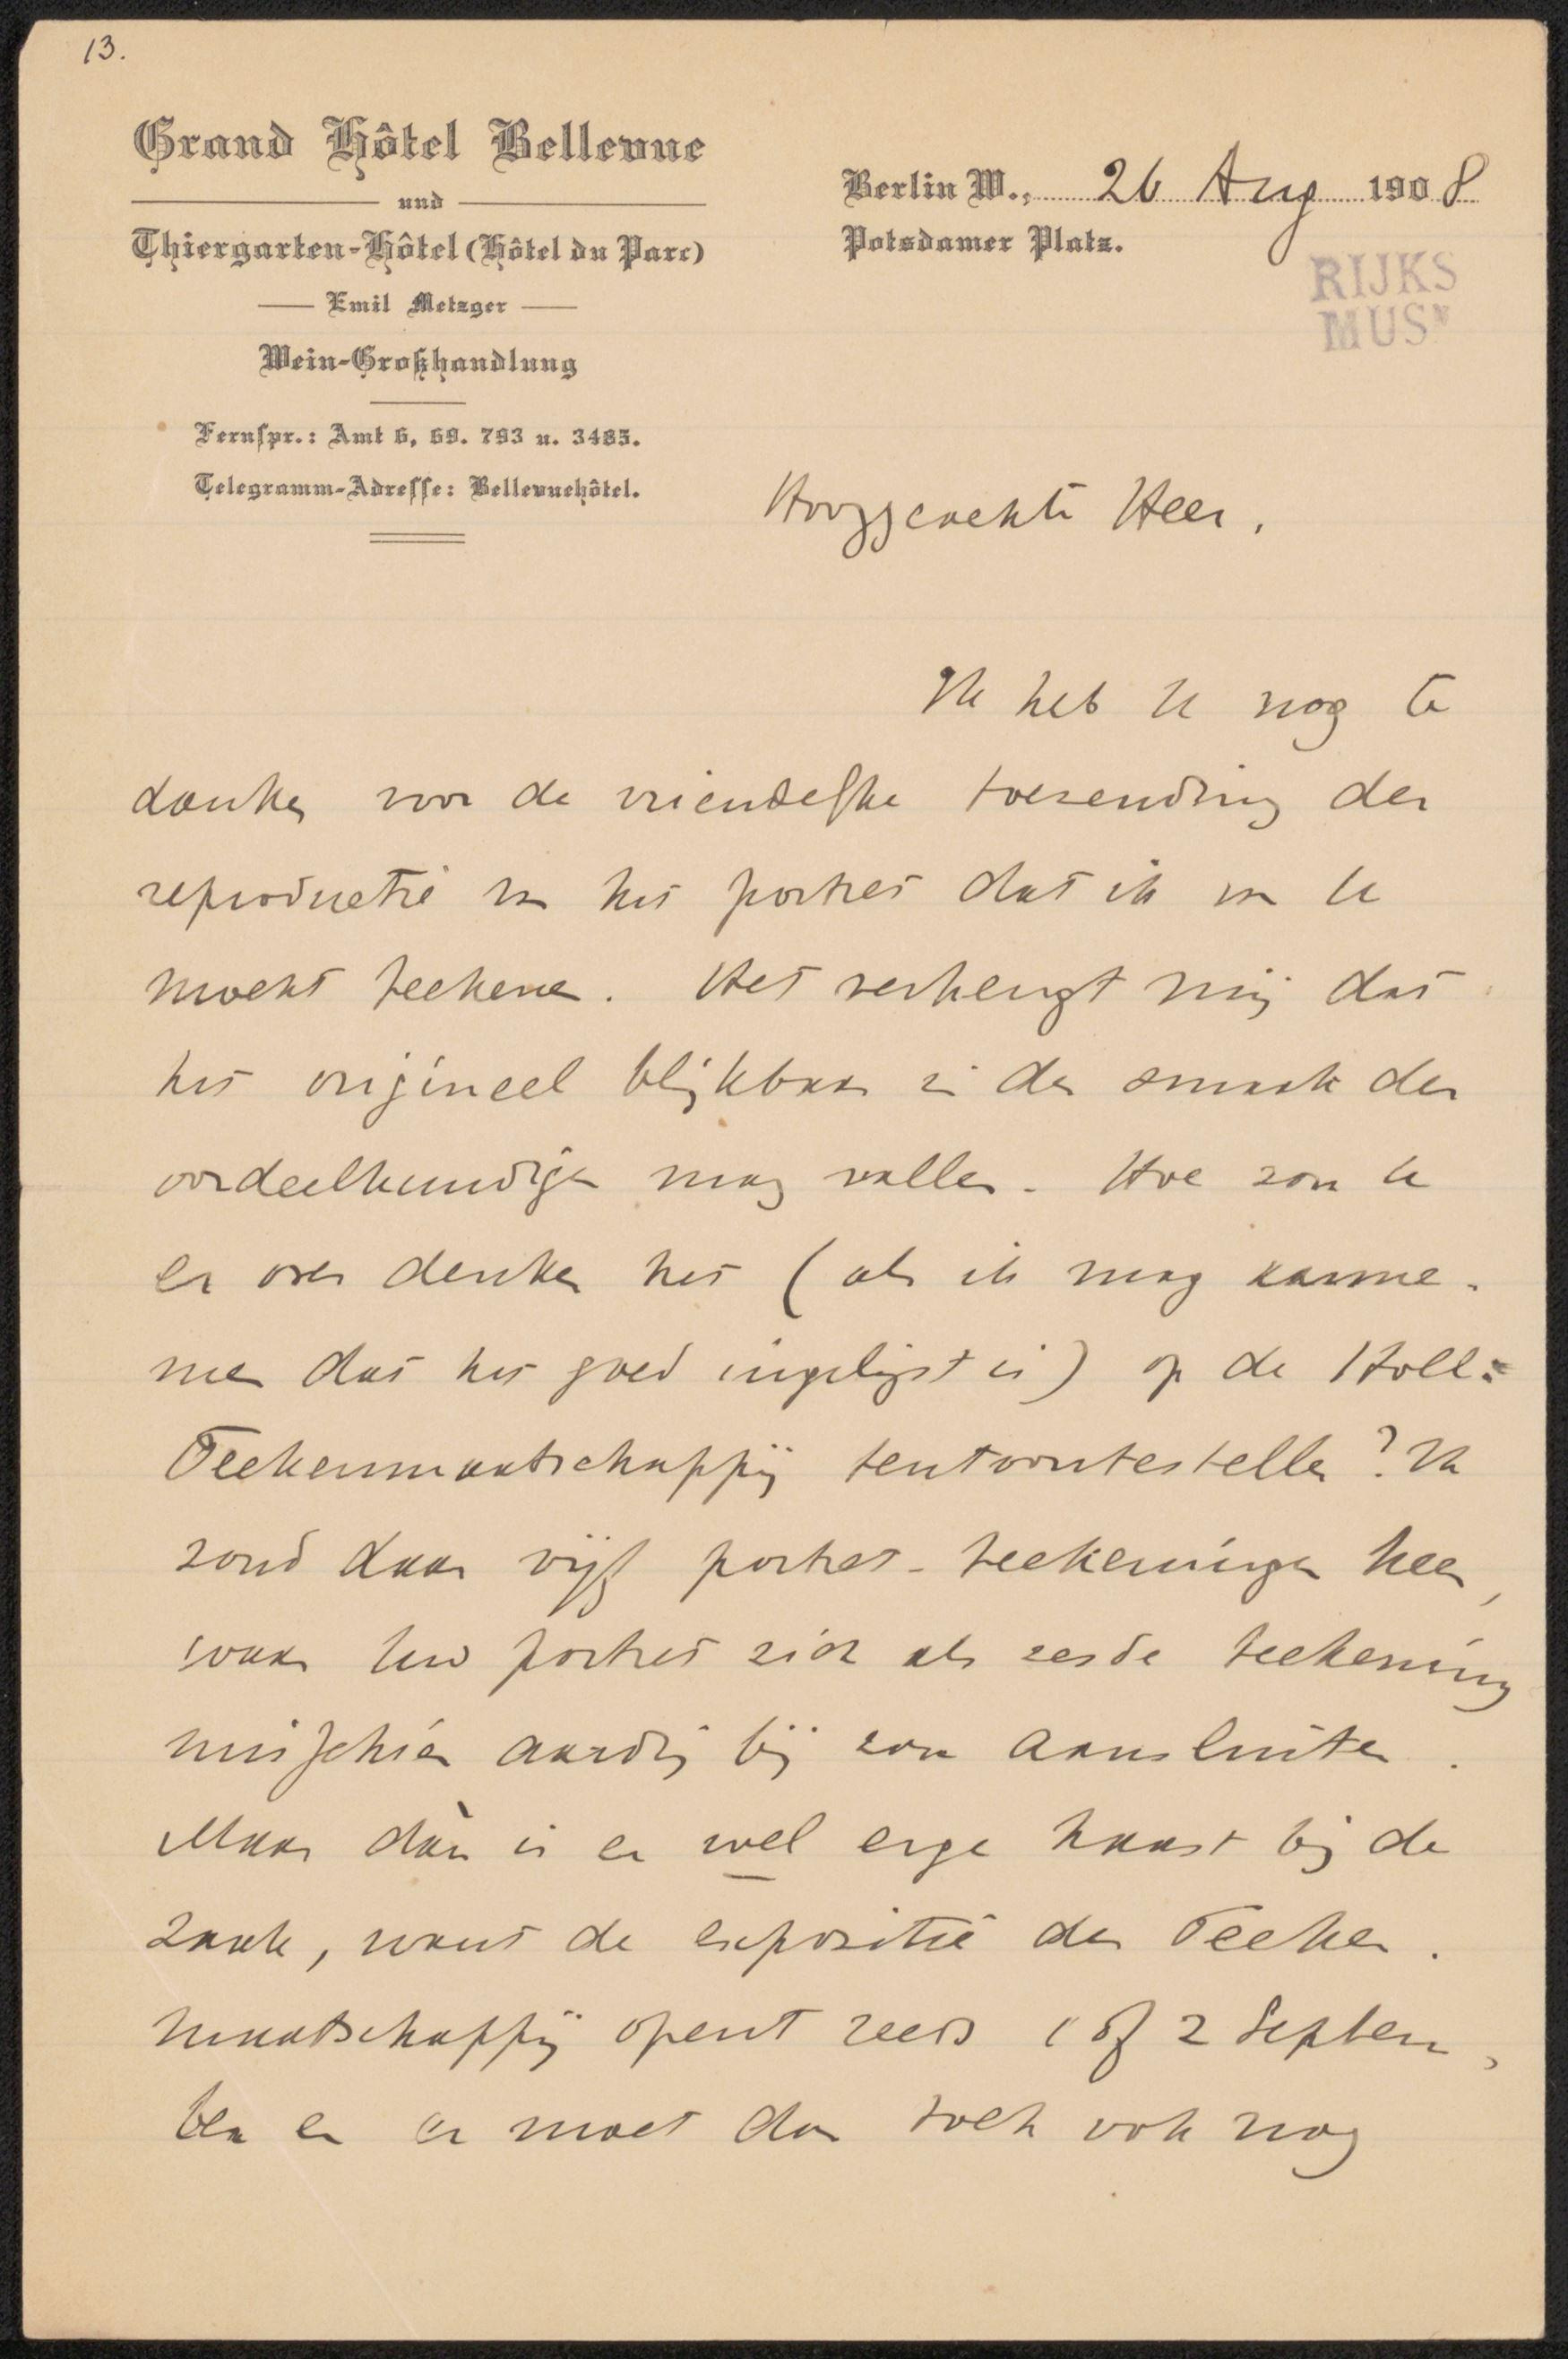 13.
Grand Hôtel Bellevue
und
Thiergarten-Hôtel (Hôtel du Parc)
Emil Metzger
Wein-Großhandlung
Fernspr.: Amt 6, 69. 793 u. 3485.
Telegramm-Adresse: Bellevuehôtel.
Berlin W., 26 Aug 1908
Potsdamer Platz.
RIJKS
MUSM
Hooggeachte Heer,
Ik heb U nog te
danken voor de vriendelijke toezending der
reproductie van het portret dat ik van U
mocht teekenen. Het verheugt mij dat
het origineel blijkbaar in den smaak der
oordeelkundigen mag vallen. Hoe zou U
er over denken het (als ik mag aanne-
men dat het goed ingelijst is) op de Holl:
Teekenmaatschappij tentoontestellen? Ik
zond daar vijf portret-teekeningen heen,
waar Uw portret zich als zesde teekening
misschien aardig bij zou aansluiten.
Maar dàn is er wel erge haast bij de
zaak, want de expositie der Teeken-
maatschappij opent reeds 1 of 2 Septem-
ber en er moet dan toch ook nog